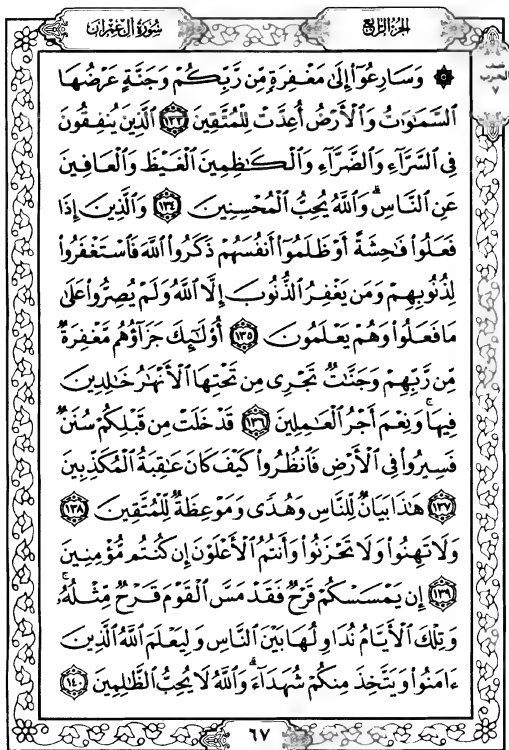 سُورَةُ آلِ عِمْرَانَ
الجُزْءُ الرَّابِعُ
الحزب
٧
۞ وَسَارِعُوٓا۟ إِلَىٰ مَغْفِرَةٍ مِّن رَّبِّكُمْ وَجَنَّةٍ عَرْضُهَا
ٱلسَّمَٰوَٰتُ وَٱلْأَرْضُ أُعِدَّتْ لِلْمُتَّقِينَ ١٣٣ ٱلَّذِينَ يُنفِقُونَ
فِى ٱلسَّرَّآءِ وَٱلضَّرَّآءِ وَٱلْكَٰظِمِينَ ٱلْغَيْظَ وَٱلْعَافِينَ
عَنِ ٱلنَّاسِ ۗ وَٱللَّهُ يُحِبُّ ٱلْمُحْسِنِينَ ١٣٤ وَٱلَّذِينَ إِذَا
فَعَلُوا۟ فَٰحِشَةً أَوْ ظَلَمُوٓا۟ أَنفُسَهُمْ ذَكَرُوا۟ ٱللَّهَ فَٱسْتَغْفَرُوا۟
لِذُنُوبِهِمْ وَمَن يَغْفِرُ ٱلذُّنُوبَ إِلَّا ٱللَّهُ وَلَمْ يُصِرُّوا۟ عَلَىٰ
مَا فَعَلُوا۟ وَهُمْ يَعْلَمُونَ ١٣٥ أُو۟لَٰٓئِكَ جَزَآؤُهُم مَّغْفِرَةٌ
مِّن رَّبِّهِمْ وَجَنَّٰتٌ تَجْرِى مِن تَحْتِهَا ٱلْأَنْهَٰرُ خَٰلِدِينَ
فِيهَا ۚ وَنِعْمَ أَجْرُ ٱلْعَٰمِلِينَ ١٣٦ قَدْ خَلَتْ مِن قَبْلِكُمْ سُنَنٌ
فَسِيرُوا۟ فِى ٱلْأَرْضِ فَٱنظُرُوا۟ كَيْفَ كَانَ عَٰقِبَةُ ٱلْمُكَذِّبِينَ
١٣٧ هَٰذَا بَيَانٌ لِّلنَّاسِ وَهُدًى وَمَوْعِظَةٌ لِّلْمُتَّقِينَ ١٣٨
وَلَا تَهِنُوا۟ وَلَا تَحْزَنُوا۟ وَأَنتُمُ ٱلْأَعْلَوْنَ إِن كُنتُم مُّؤْمِنِينَ
١٣٩ إِن يَمْسَسْكُمْ قَرْحٌ فَقَدْ مَسَّ ٱلْقَوْمَ قَرْحٌ مِّثْلُهُۥ ۚ
وَتِلْكَ ٱلْأَيَّامُ نُدَاوِلُهَا بَيْنَ ٱلنَّاسِ وَلِيَعْلَمَ ٱللَّهُ ٱلَّذِينَ
ءَامَنُوا۟ وَيَتَّخِذَ مِنكُمْ شُهَدَآءَ ۗ وَٱللَّهُ لَا يُحِبُّ ٱلظَّٰلِمِينَ ١٤٠
٦٧